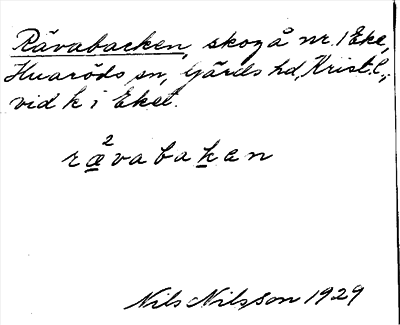 Rävabacken, skog å nr. 1 Eke,
Huaröds sn, Gärds hd, Krist. l.,
vid k i Eket.
ræ²vabaken
Nils Nilsson 1929